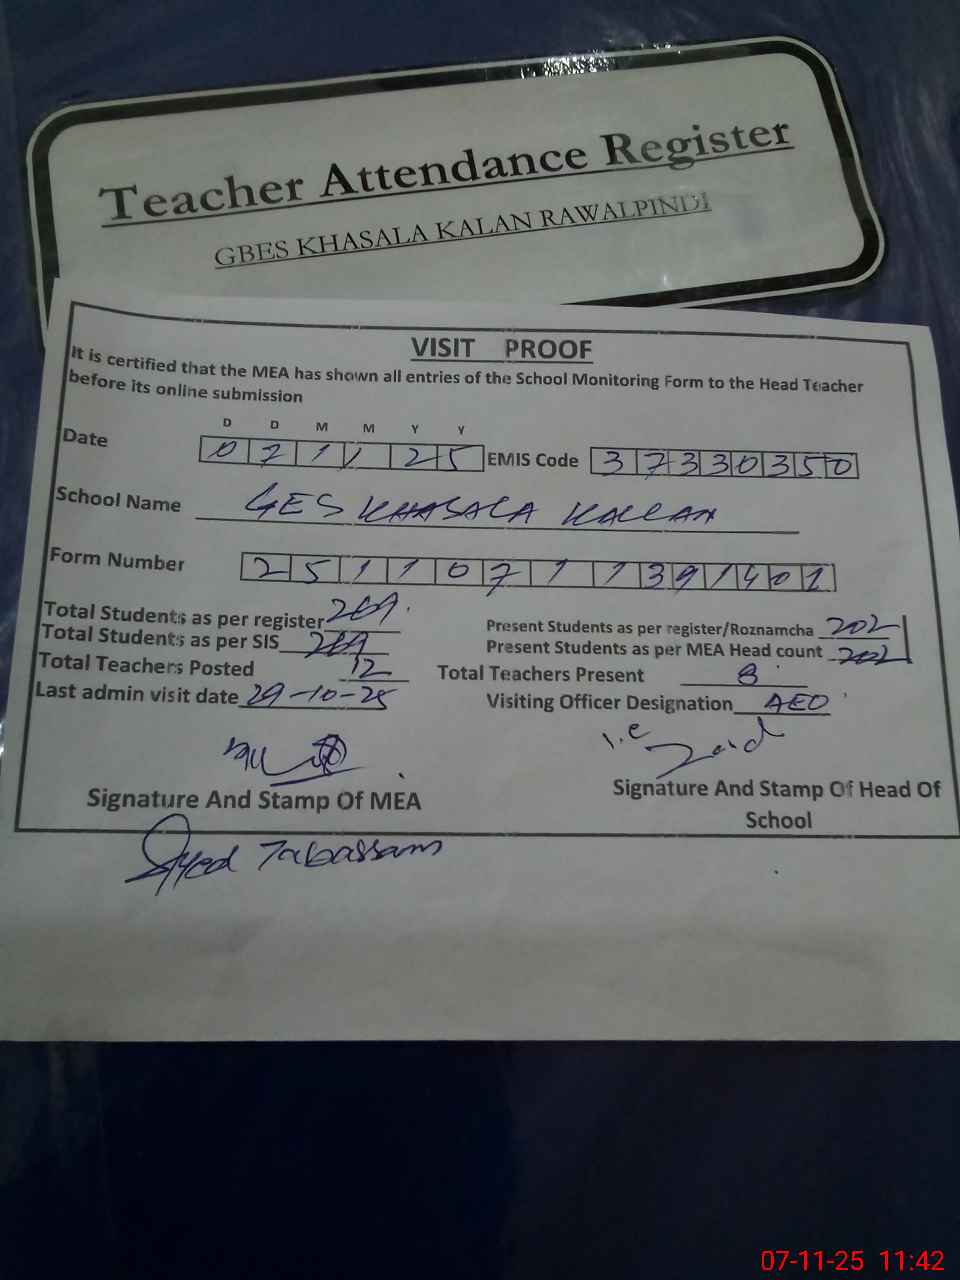 Teacher Attendance Register
GBES KHASALA KALAN RAWALPINDI
VISIT PROOF
It is certified that the MEA has shown all entries of the School Monitoring Form to the Head Teacher
before its online submission
D D M M Y Y
Date 0 7 1 1 2 5 EMIS Code 3 7 3 3 0 3 5 0
School Name GES KHASALA KALLAN
Form Number 2 5 1 1 0 7 1 1 3 9 1 4 0 1
Total Students as per register 269 Present Students as per register/Roznamcha 202
Total Students as per SIS 269 Present Students as per MEA Head count 202
Total Teachers Posted 12 Total Teachers Present 8
Last admin visit date 29-10-25 Visiting Officer Designation AEO
i.e Zaid
Signature And Stamp Of MEA Signature And Stamp Of Head Of
School
Syed Tabassam
07-11-25 11:42